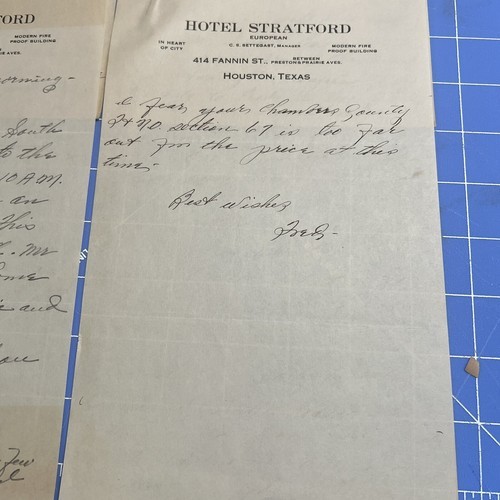 RD
MODERN FIRE
PROOF BUILDING
AVES.
orming -
South
to the
10 A.M.
- an
this
Mr
ome
and
ou
Few
HOTEL STRATFORD
EUROPEAN
IN HEART
OF CITY
C. E. BETTEGAST, MANAGER
MODERN FIRE
PROOF BUILDING
414 FANNIN ST., BETWEEN PRESTON & PRAIRIE AVES.
HOUSTON, TEXAS
I fear yours Chambers County
H & N.O. section 67 is too far
out for the price at this
time -
Best Wishes
Fred -